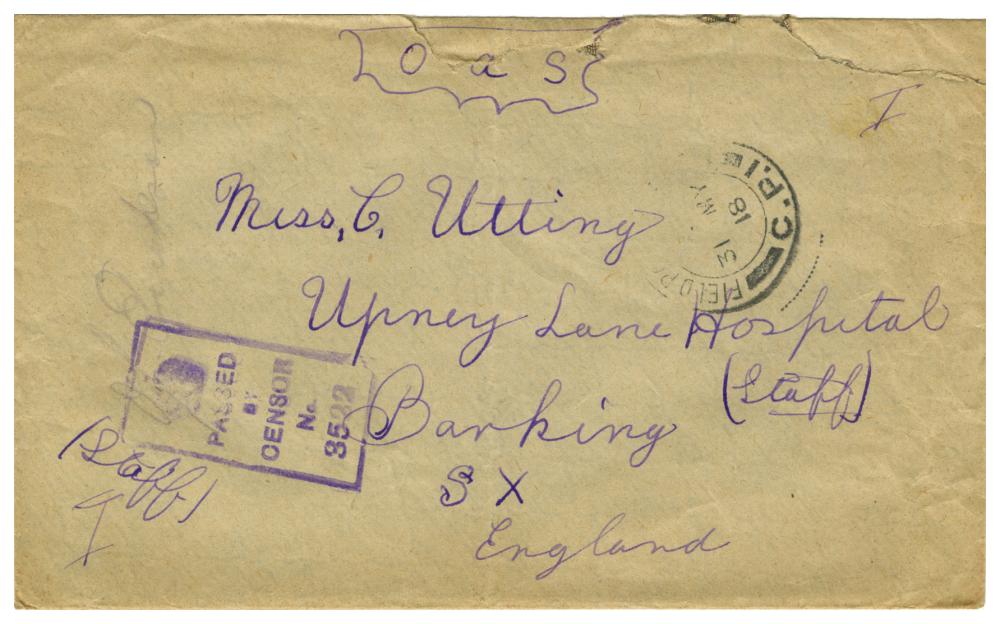 O a S
I
Miss, C. Utting
Upney Lane Hospital
(Staff)
Barking
S X
England
(Staff)
I
PASSED
BY
CENSOR
No.
3522
FIELD P
C.P.1
31
MY
18